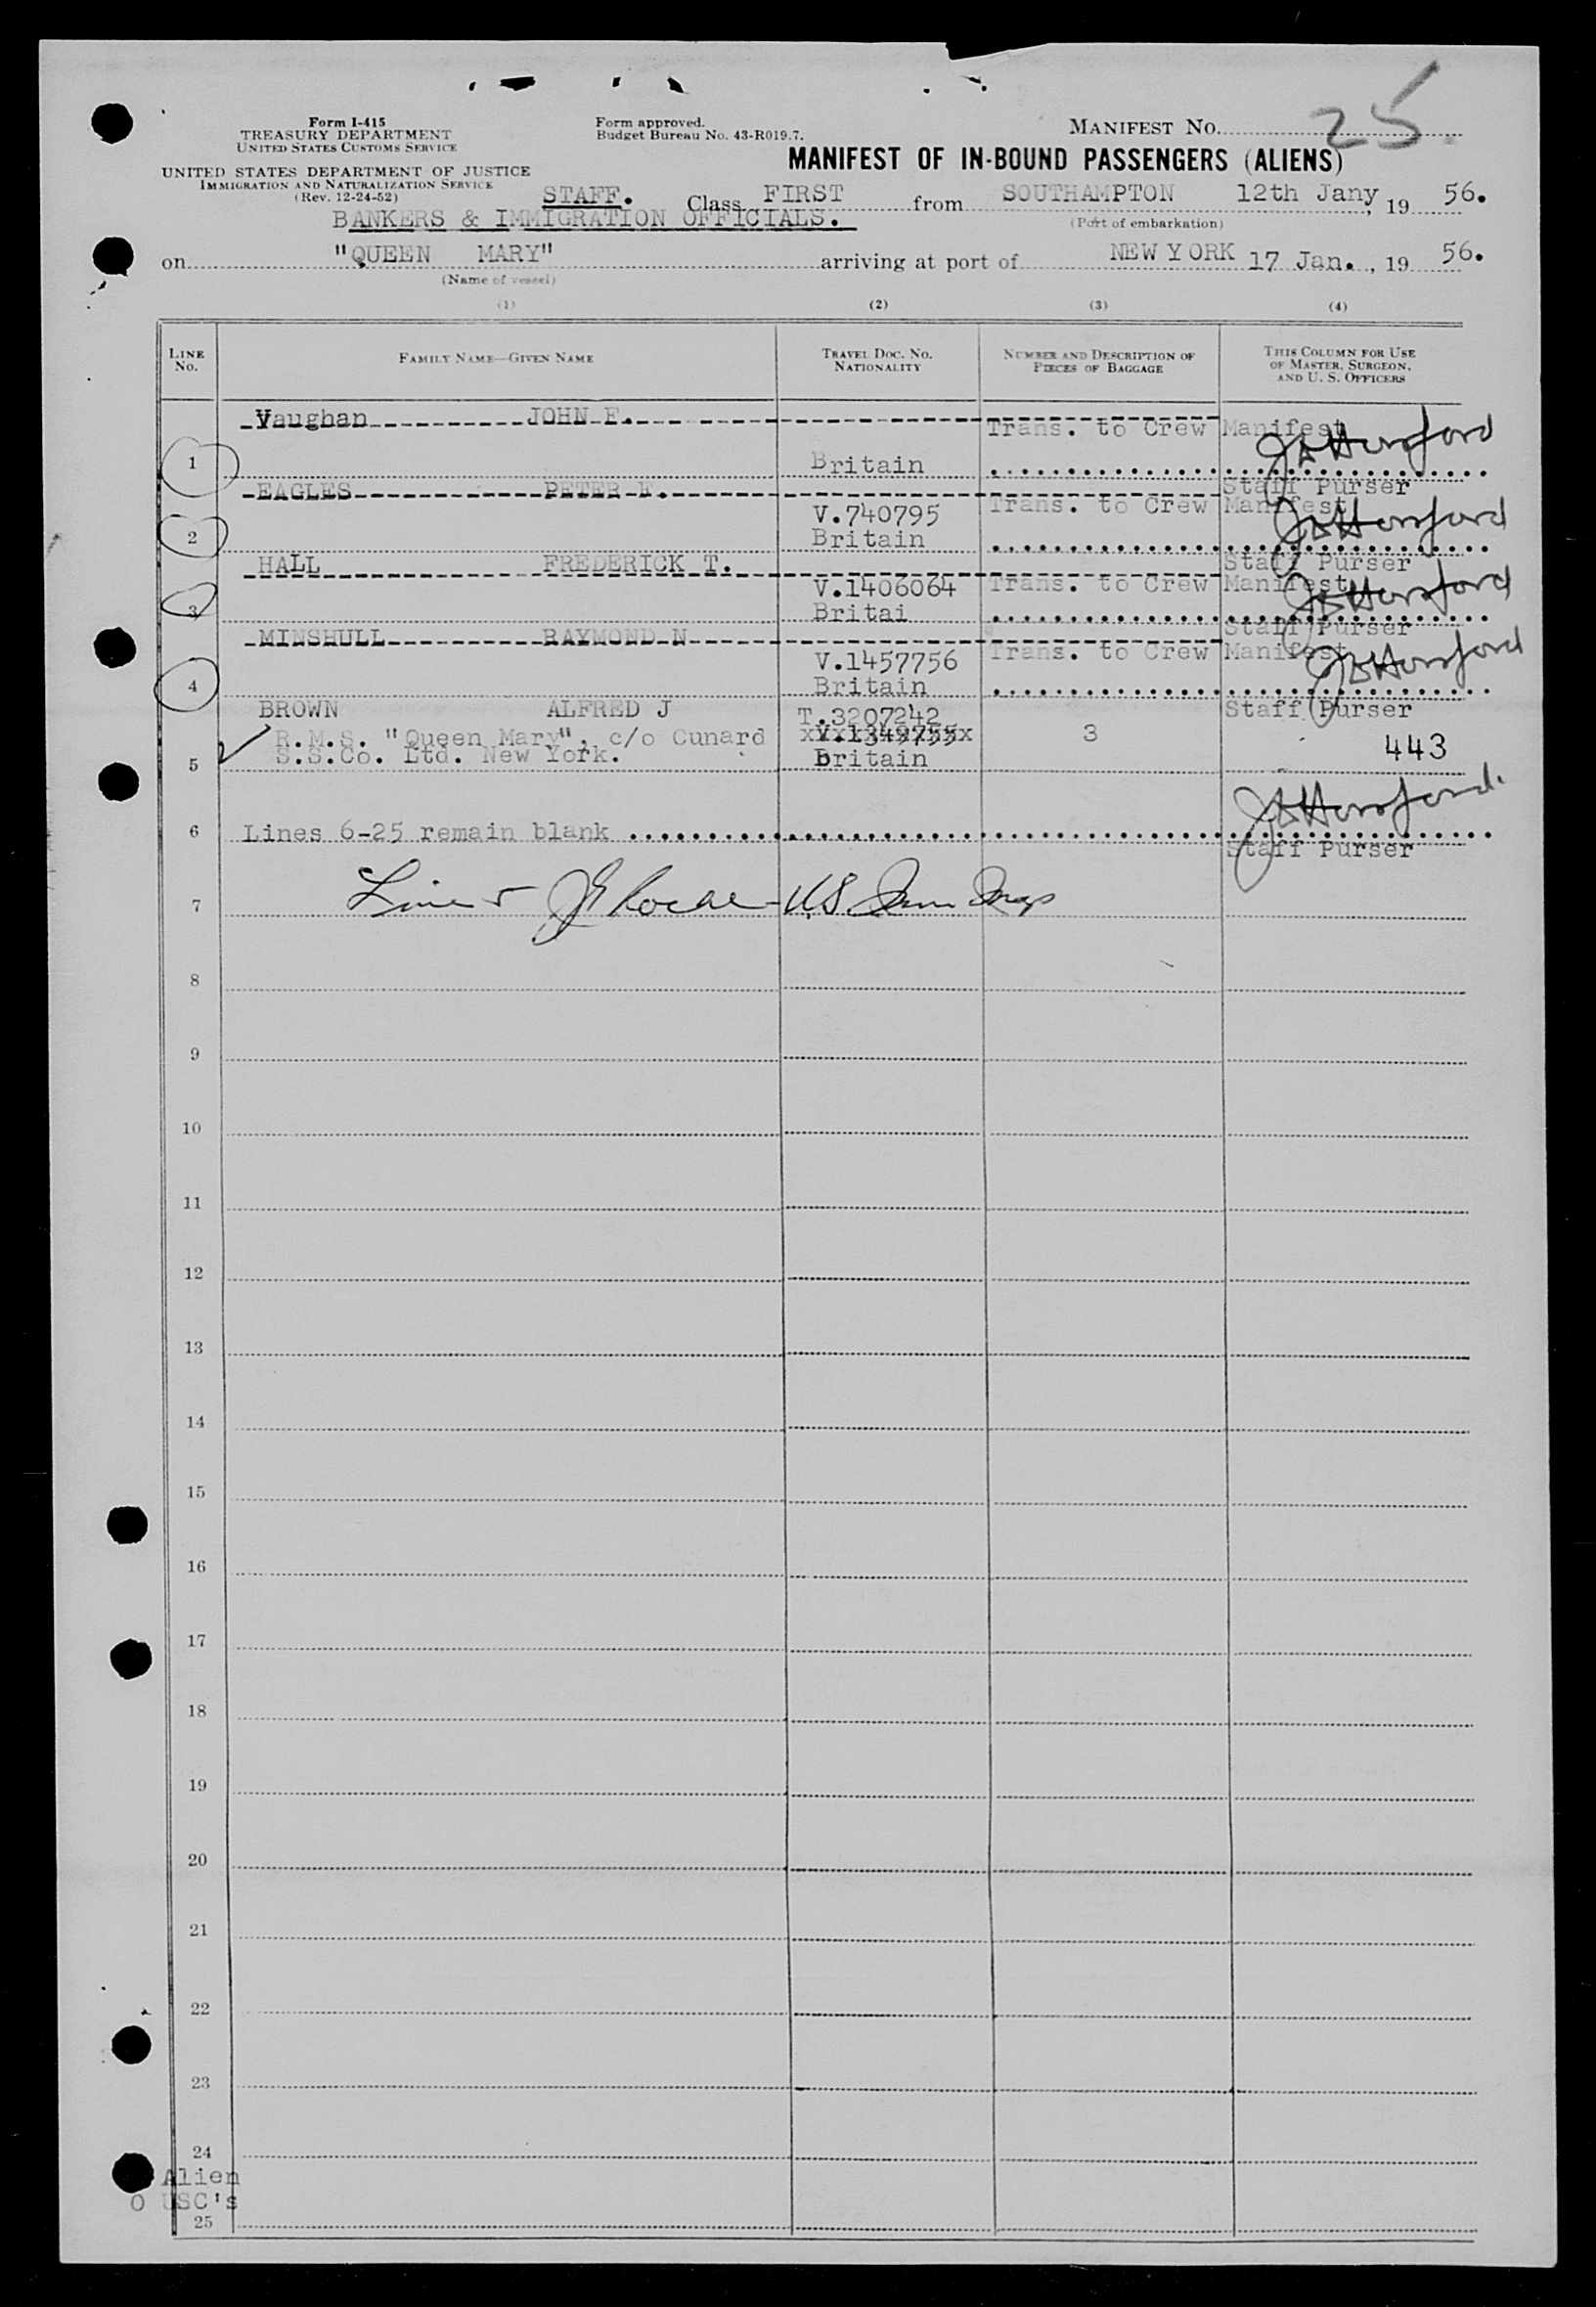 25
Form I-415
TREASURY DEPARTMENT
UNITED STATES CUSTOMS SERVICE
UNITED STATES DEPARTMENT OF JUSTICE
IMMIGRATION AND NATURALIZATION SERVICE
(Rev. 12-24-52)
Form approved.
Budget Bureau No. 43-R019.7.
MANIFEST NO.
MANIFEST OF IN-BOUND PASSENGERS (ALIENS)
STAFF. Class FIRST from SOUTHAMPTON 12th Jany, 19 56.
(Port of embarkation)
BANKERS & IMMIGRATION OFFICIALS.
on "QUEEN MARY" arriving at port of NEW YORK 17 Jan., 19 56.
(Name of vessel)
(1) (2) (3) (4)
LINE NO. FAMILY NAME—GIVEN NAME TRAVEL DOC. NO. NATIONALITY NUMBER AND DESCRIPTION OF PIECES OF BAGGAGE THIS COLUMN FOR USE OF MASTER, SURGEON, AND U. S. OFFICERS
Vaughan JOHN F.
Trans. to Crew Manifest
1 Britain
Staff Purser
EAGLES PETER F.
V.740795 Trans. to Crew Manifest
2 Britain
Staff Purser
HALL FREDERICK T.
V.1406064 Trans. to Crew Manifest
3 Britai
Staff Purser
MINSHULL RAYMOND N
V.1457756 Trans. to Crew Manifest
4 Britain
Staff Purser
BROWN ALFRED J T.3207242
R.M.S. "Queen Mary", c/o Cunard V.1349755 3 443
S.S.Co. Ltd. New York. Britain
5
6 Lines 6-25 remain blank
Staff Purser
7 Line 5
8
9
10
11
12
13
14
15
16
17
18
19
20
21
22
23
24
Alien
0 USC's
25